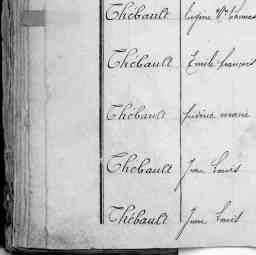 Thébault Eugène
Thébault Emile françois
Thébault marie
Thébault Jean Louis
Thébault Jean Louis